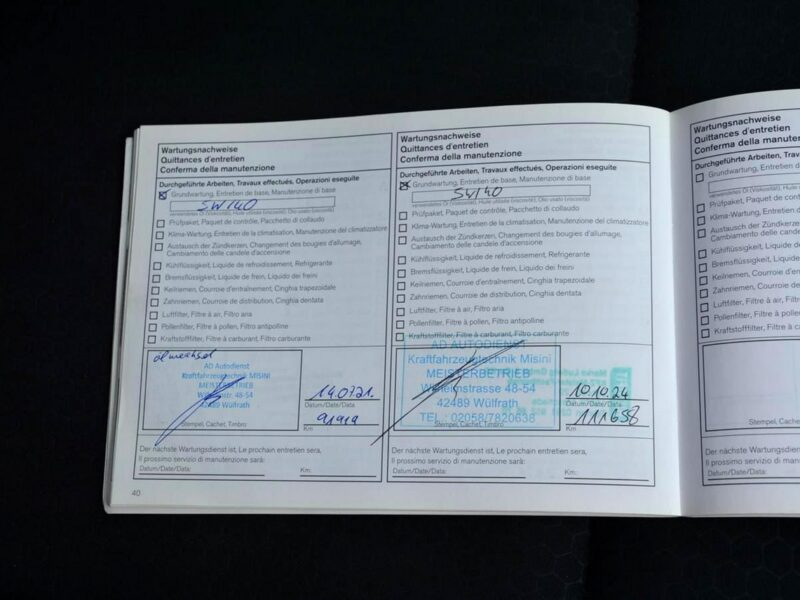 Wartungsnachweise
Quittances d'entretien
Conferma della manutenzione
Durchgeführte Arbeiten, Travaux effectués, Operazioni eseguite
Grundwartung, Entretien de base, Manutenzione di base
5W/40
verwendetes Öl (Viskosität), Huile utilisée (viscosité), Olio usato (viscosità)
Prüfpaket, Paquet de contrôle, Pacchetto di collaudo
Klima-Wartung, Entretien de la climatisation, Manutenzione del climatizzatore
Austausch der Zündkerzen, Changement des bougies d'allumage,
Cambiamento delle candele d'accensione
Kühlflüssigkeit, Liquide de refroidissement, Refrigerante
Bremsflüssigkeit, Liquide de frein, Liquido dei freini
Keilriemen, Courroie d'entraînement, Cinghia trapezoidale
Zahnriemen, Courroie de distribution, Cinghia dentata
Luftfilter, Filtre à air, Filtro aria
Pollenfilter, Filtre à pollen, Filtro antipolline
Kraftstofffilter, Filtre à carburant, Filtro carburante
Ölwechsel
AD Autodienst
Kraftfahrzeugtechnik MISINI
MEISTERBETRIEB
Wilhelmstrasse 48-54
42489 Wülfrath
Stempel, Cachet, Timbro
14.07.21.
Datum/Date/Data
91919
Km
Der nächste Wartungsdienst ist, Le prochain entretien sera,
Il prossimo servizio di manutenzione sarà:
Datum/Date/Data:
Km:
40
Wartungsnachweise
Quittances d'entretien
Conferma della manutenzione
Durchgeführte Arbeiten, Travaux effectués, Operazioni eseguite
Grundwartung, Entretien de base, Manutenzione di base
5W/40
verwendetes Öl (Viskosität), Huile utilisée (viscosité), Olio usato (viscosità)
Prüfpaket, Paquet de contrôle, Pacchetto di collaudo
Klima-Wartung, Entretien de la climatisation, Manutenzione del climatizzatore
Austausch der Zündkerzen, Changement des bougies d'allumage,
Cambiamento delle candele d'accensione
Kühlflüssigkeit, Liquide de refroidissement, Refrigerante
Bremsflüssigkeit, Liquide de frein, Liquido dei freini
Keilriemen, Courroie d'entraînement, Cinghia trapezoidale
Zahnriemen, Courroie de distribution, Cinghia dentata
Luftfilter, Filtre à air, Filtro aria
Pollenfilter, Filtre à pollen, Filtro antipolline
Kraftstofffilter, Filtre à carburant, Filtro carburante
AD AUTODIENST
Kraftfahrzeugtechnik Misini
MEISTERBETRIEB
Wilhelmstrasse 48-54
42489 Wülfrath
TEL.: 02058/7820638
Stempel, Cachet, Timbro
10.10.24
Datum/Date/Data
111658
Km
Der nächste Wartungsdienst ist, Le prochain entretien sera,
Il prossimo servizio di manutenzione sarà:
Datum/Date/Data:
Km:
Wartungsnachweise
Quittances d'entretien
Conferma della manu
Durchgeführte Arbeiten, Trava
Grundwartung, Entretien de
verwendetes Öl (Viskosität), Huile
Prüfpaket, Paquet de cont
Klima-Wartung, Entretien
Austausch der Zündkerze
Cambiamento delle cande
Kühlflüssigkeit, Liquide
Bremsflüssigkeit, Liquid
Keilriemen, Courroie d'
Zahnriemen, Courroie
Luftfilter, Filtre à air, F
Pollenfilter, Filtre à po
Kraftstofffilter, Filtre
Stempel, Cache
Der nächste Wartungsdien
Il prossimo servizio di man
Datum/Date/Data: